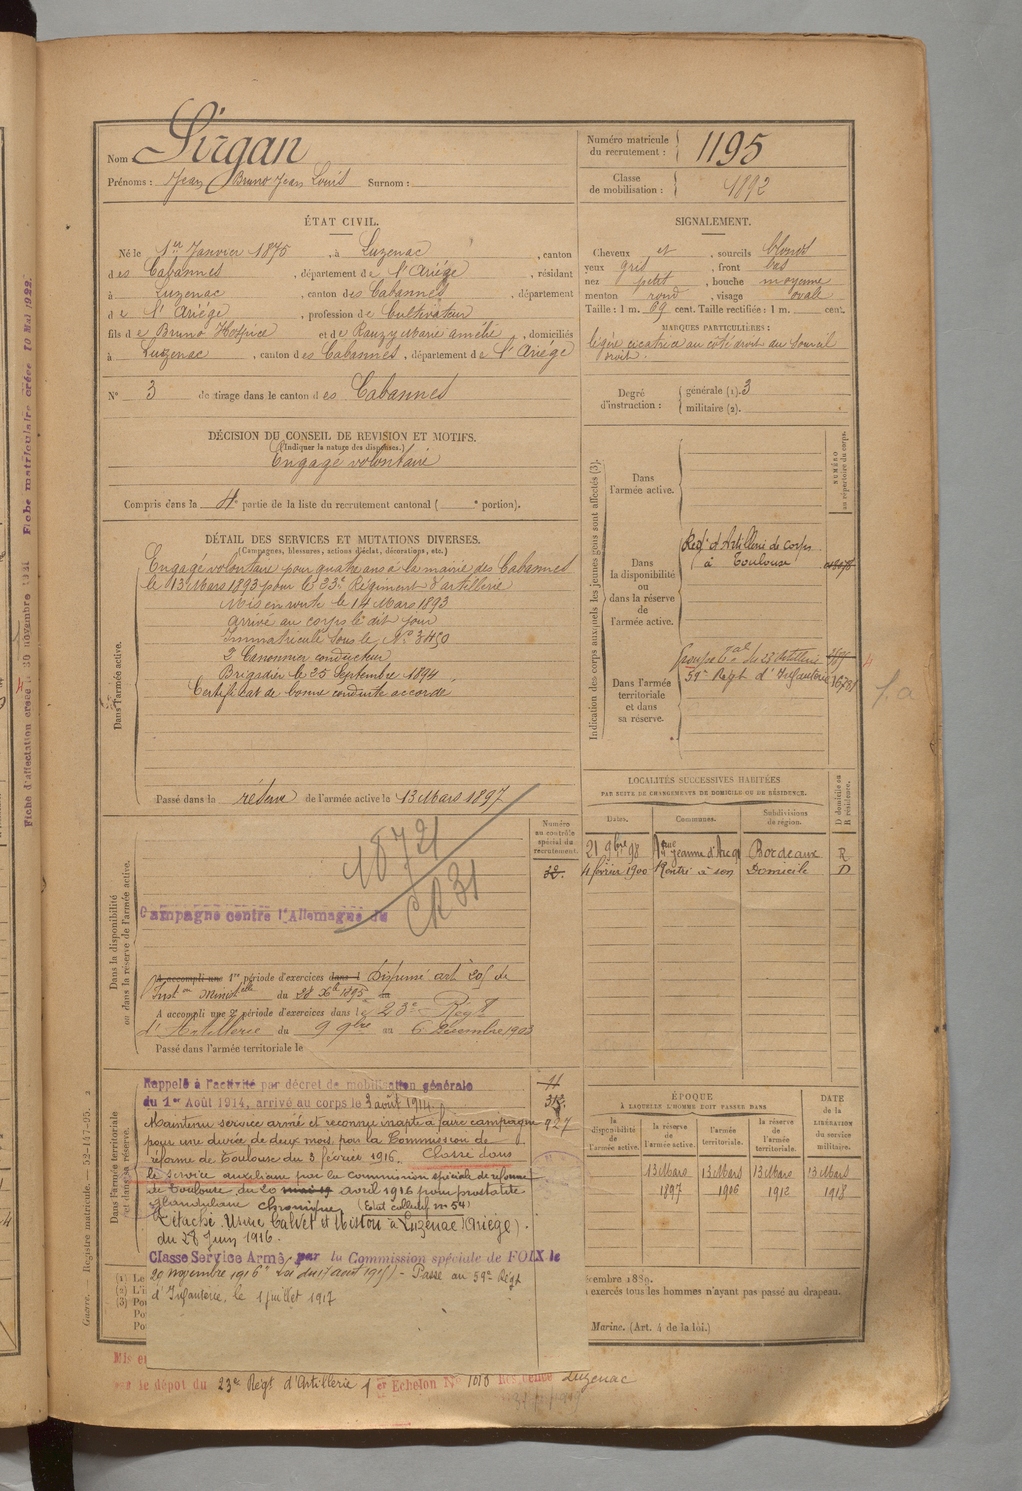 Nom Sirgan
Prénoms : Jean Bruno Jean Louis Surnom :
Numéro matricule du recrutement : 1195
Classe de mobilisation : 1892
ÉTAT CIVIL.
Né le 1er Janvier 1875, à Luzenac, canton
des Cabannes, département de l'Ariége, résidant
à Luzenac, canton des Cabannes, département
de l'Ariége, profession de Cultivateur
fils de Bruno Hospice et de Rauzy Marie amélie, domiciliés
à Luzenac, canton des Cabannes, département de l'Ariége
N° 3 de tirage dans le canton des Cabannes
SIGNALEMENT.
Cheveux et, sourcils blonds
yeux gris, front bas
nez petit, bouche moyenne
menton rond, visage ovale
Taille : 1 m. 69 cent. Taille rectifiée : 1 m. cent.
MARQUES PARTICULIÈRES :
légère cicatrice au côté droit du sourcil
droit.
Degré d'instruction : générale (1). 3
militaire (2).
DÉCISION DU CONSEIL DE REVISION ET MOTIFS.
(Indiquer la nature des dispenses.)
Engagé volontaire
Compris dans la 4e partie de la liste du recrutement cantonal ( e portion).
DÉTAIL DES SERVICES ET MUTATIONS DIVERSES.
(Campagnes, blessures, actions d'éclat, décorations, etc.)
Dans l'armée active.
Engagé volontaire pour quatre ans à la mairie des Cabannes
le 13 Mars 1893 pour le 23e Régiment d'artillerie
Mis en route le 14 Mars 1893
arrivé au corps le dit jour
Immatriculé sous le No 3450
2e Canonnier conducteur
Brigadier le 25 Septembre 1894
Certificat de bonne conduite accordé
Passé dans la réserve de l'armée active le 13 Mars 1897
Indication des corps auxquels les jeunes gens sont affectés (3).
NUMÉRO au répertoire du corps.
Dans l'armée active.
Dans la disponibilité ou dans la réserve de l'armée active.
Regt d'Artillerie de corps
à Toulouse
Dans l'armée territoriale et dans sa réserve.
Groupe Tal du 23 Artillerie
59e Régt d'Infanterie
LOCALITÉS SUCCESSIVES HABITÉES
PAR SUITE DE CHANGEMENTS DE DOMICILE OU DE RÉSIDENCE.
Dates. Communes. Subdivisions de région. D domicile ou R résidence.
21 9bre 98 rue jeanne d'Arc 91 Bordeaux R
4 février 1900 Rentré à son Domicile D
Numéro au contrôle spécial du recrutement.
Dans la disponibilité ou dans la réserve de l'armée active.
18721
CR 31
Campagne contre l'Allemagne du
A accompli une 1re période d'exercices dans l Dispensé art 205 de
Inston Ministelle du 28 Xbre 1895
A accompli une 2e période d'exercices dans le 23e Régt
d'Artillerie du 9 9bre au 6 Décembre 1903
Passé dans l'armée territoriale le
Dans l'armée territoriale et dans sa réserve.
Rappelé à l'activité par décret de mobilisation générale
du 1er Août 1914, arrivé au corps le 3 août 1914
Maintenu service armé et reconnu inapte à faire campagne
pour une durée de deux mois par la Commission de
réforme de Toulouse du 3 février 1916. Classé dans
le service auxiliaire par la Commission spéciale de réforme
de Toulouse du 20 avril 1916 pour prostatite
glandulaire chronique (Etat collectif no 54)
Détaché Usine Calvet et Histou à Luzenac (Ariège).
du 28 Juin 1916.
Classé Service Armé par la Commission spéciale de FOIX le
20 novembre 1916 - Passé au 59e Régt
d'Infanterie, le 1 juillet 1917
11
927
ÉPOQUE
À LAQUELLE L'HOMME DOIT PASSER DANS
la disponibilité de l'armée active. la réserve de l'armée active. l'armée territoriale. la réserve de l'armée territoriale.
DATE de la LIBÉRATION du service militaire.
13 Mars 1897 13 Mars 1906 13 Mars 1912 13 Mars 1918
(1) Le
(2) L'i
(3) Po
Po
Po
décembre 1889.
exercés tous les hommes n'ayant pas passé au drapeau.
Marine. (Art. 4 de la loi.)
le dépôt du 23e Régt d'Artillerie 1er Echelon No 1010 Résidence Luzenac
Guerre. — Registre matricule. — 52-147-95. 2
Fiche matriculaire créée 10 Mai 1922.